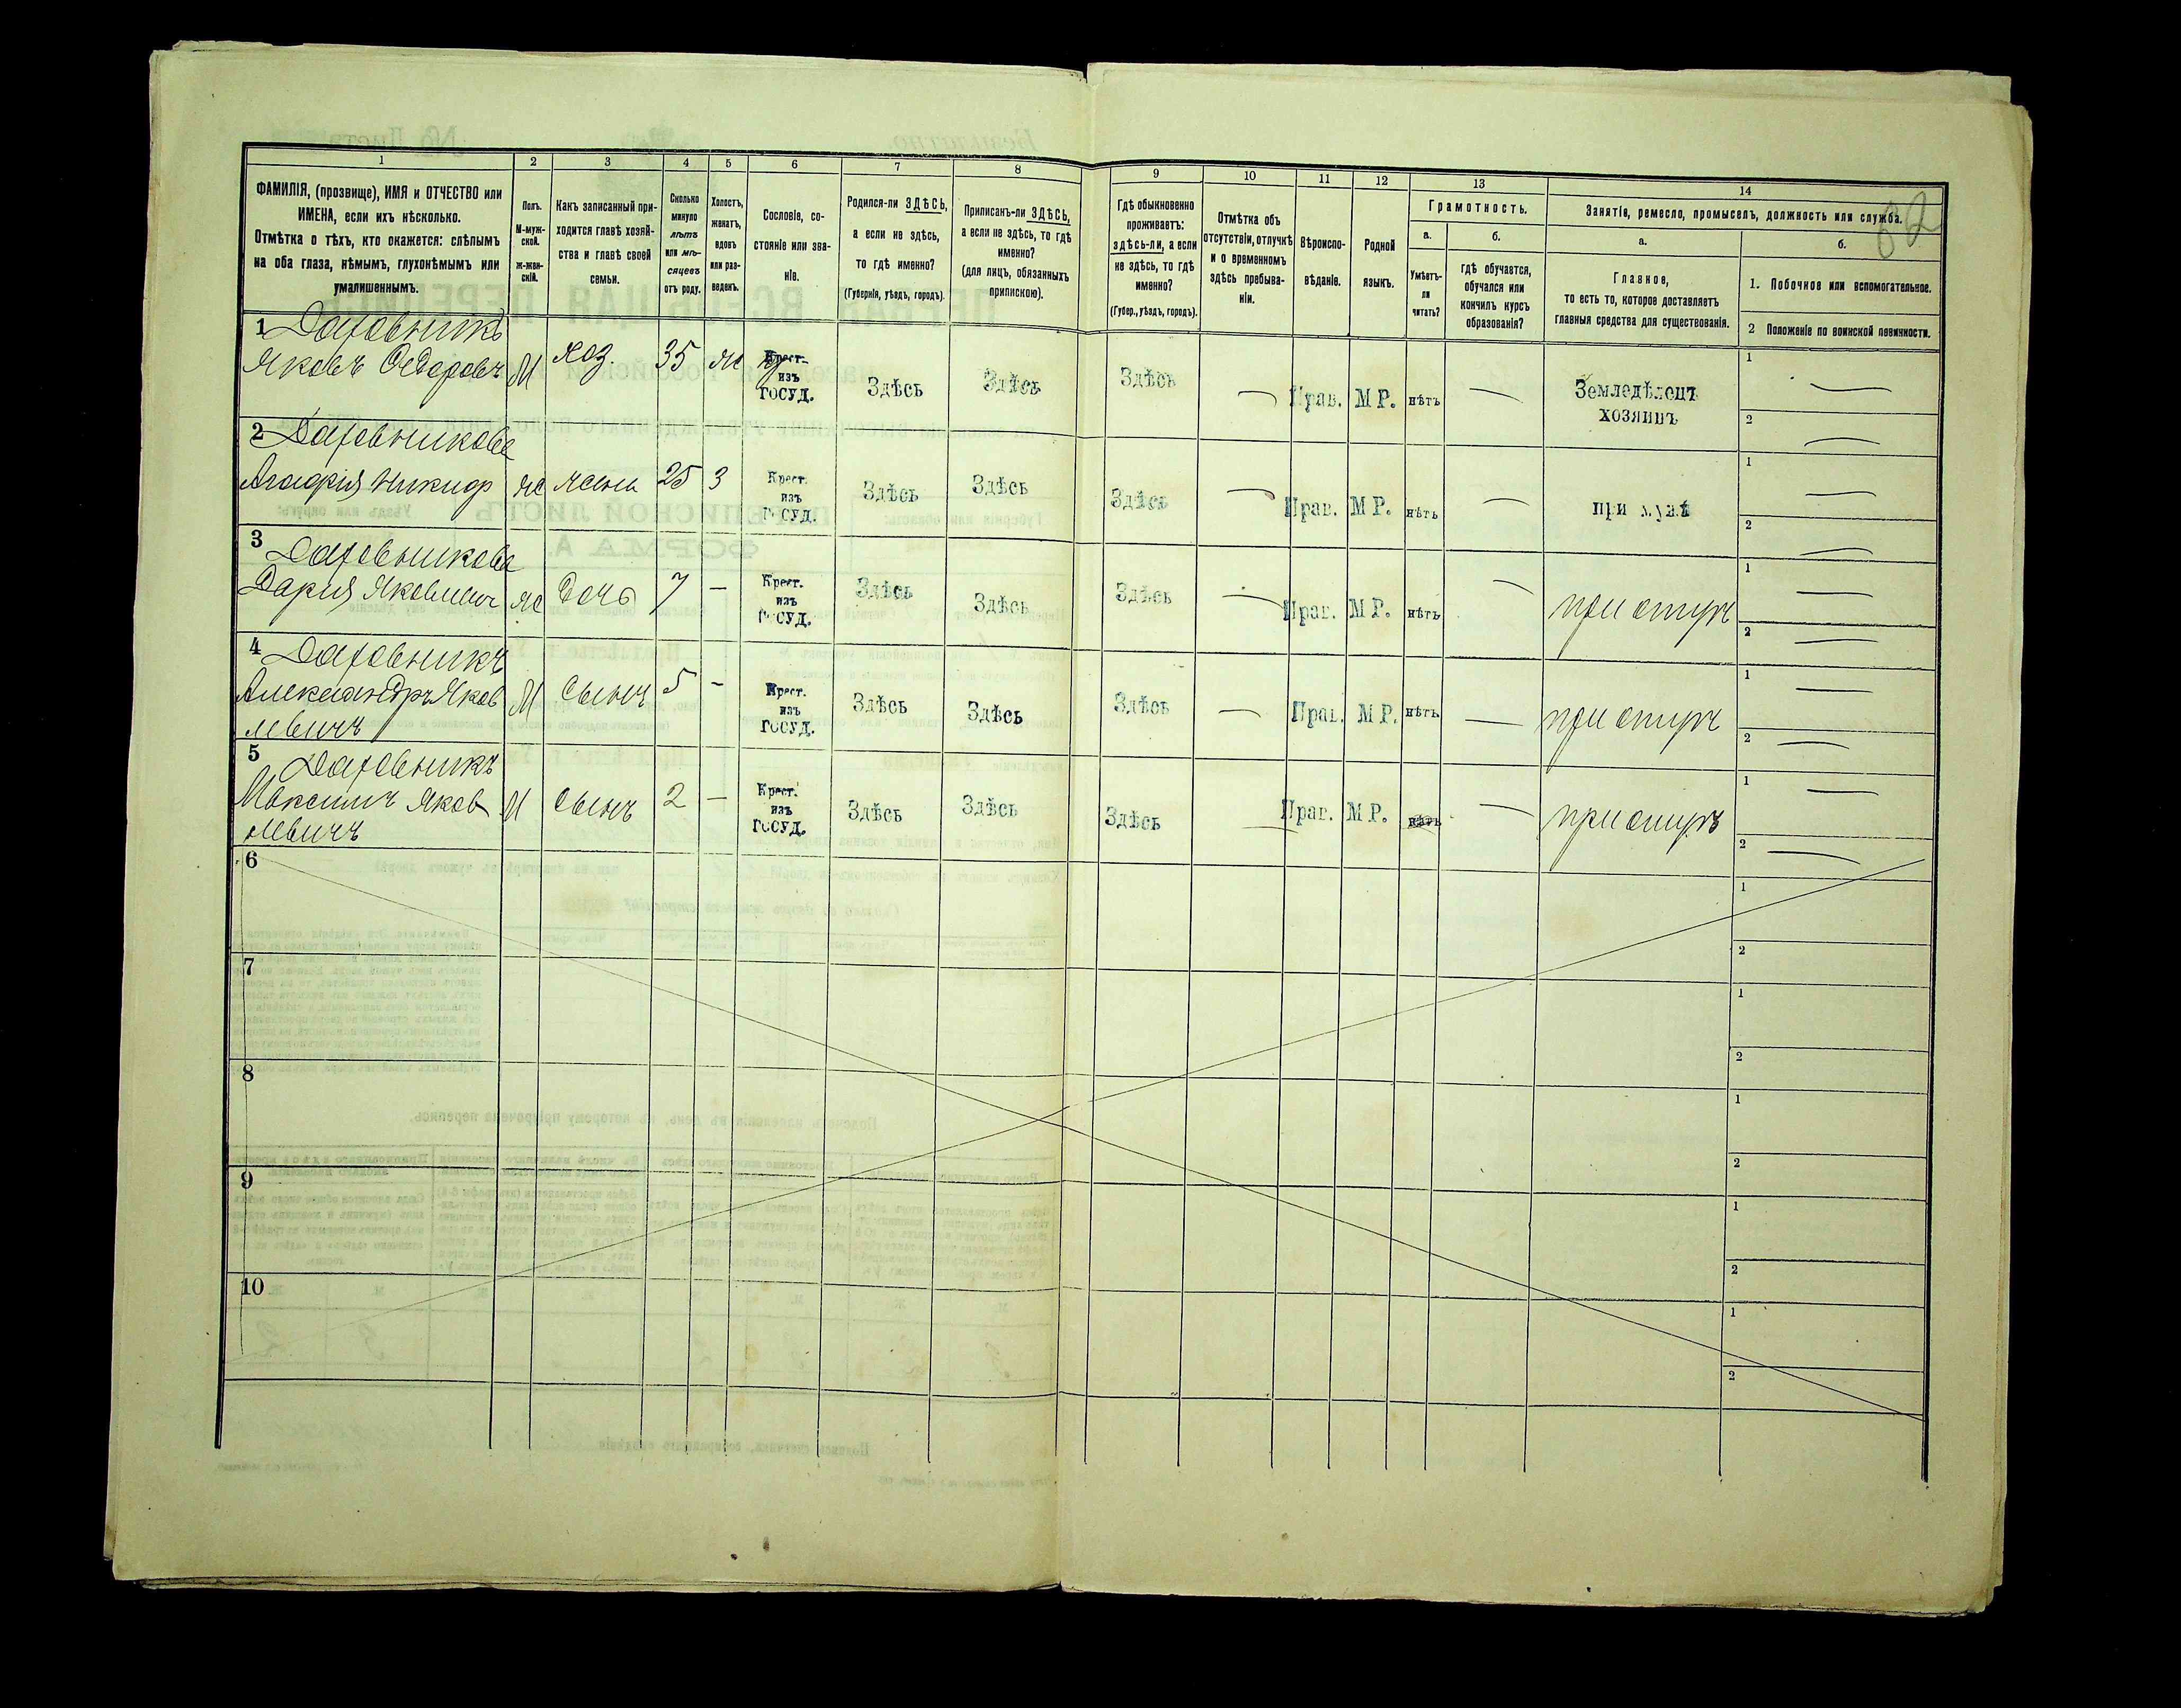 62
1 2 3 4 5 6 7 8 9 10 11 12 13 14
ФАМИЛІЯ, (прозвище), ИМЯ и ОТЧЕСТВО или
ИМЕНА, если ихъ нѣсколько.
Отмѣтка о тѣхъ, кто окажется: слѣпымъ
на оба глаза, нѣмымъ, глухонѣмымъ или
умалишеннымъ.
Полъ.
М-муж-
ской.
Ж-жен-
скій.
Какъ записанный при-
ходится главѣ хозяй-
ства и главѣ своей
семьи.
Сколько
минуло
лѣтъ
или мѣ-
сяцевъ
отъ роду.
Холостъ,
женатъ,
вдовъ
или раз-
веденъ.
Сословіе, со-
стояніе или зва-
ніе.
Родился-ли ЗДѢСЬ,
а если не здѣсь,
то гдѣ именно?
(Губернія, уѣздъ, городъ).
Приписанъ-ли ЗДѢСЬ,
а если не здѣсь, то гдѣ
именно?
(для лицъ, обязанныхъ
припискою).
Гдѣ обыкновенно
проживаетъ:
здѣсь-ли, а если
не здѣсь, то гдѣ
именно?
(Губер., уѣздъ, городъ).
Отмѣтка объ
отсутствіи, отлучкѣ
и о временномъ
здѣсь пребыва-
ніи.
Вѣроиспо-
вѣданіе.
Родной
языкъ.
Грамотность.
а.
Умѣетъ-
ли
читать?
б.
гдѣ обучается,
обучался или
кончилъ курсъ
образованія?
Занятіе, ремесло, промыселъ, должность или служба.
а.
Главное,
то есть то, которое доставляетъ
главныя средства для существованія.
б.
1. Побочное или вспомогательное.
2 Положеніе по воинской повинности.
1
Яковъ Ѳедоровъ М хоз. 35 ж Крест. изъ ГОСУД. Здѣсь Здѣсь Здѣсь — Прав. М Р. нѣтъ — Земледѣлецъ хозяинъ 1 — 2 —
2
Агафія Никиф ж жена 25 З Крест. изъ ГОСУД. Здѣсь Здѣсь Здѣсь — Прав. М Р. нѣтъ — при мужѣ 1 — 2 —
3
Дарія Яковлевн ж дочь 7 — Крест. изъ ГОСУД. Здѣсь Здѣсь Здѣсь — Прав. М Р. нѣтъ — при отцѣ 1 — 2 —
4
Александръ Яков М Сынъ 5 - Крест. изъ ГОСУД. Здѣсь Здѣсь Здѣсь — Прав. М Р. нѣтъ — при отцѣ 1 — 2 —
левичъ
5
Максимъ Яков М Сынъ 2 — Крест. изъ ГОСУД. Здѣсь Здѣсь Здѣсь — Прав. М Р. нѣтъ — при отцѣ 1 — 2 —
левичъ
6 1 2
7 1 2
8 1 2
9 1 2
10 1 2